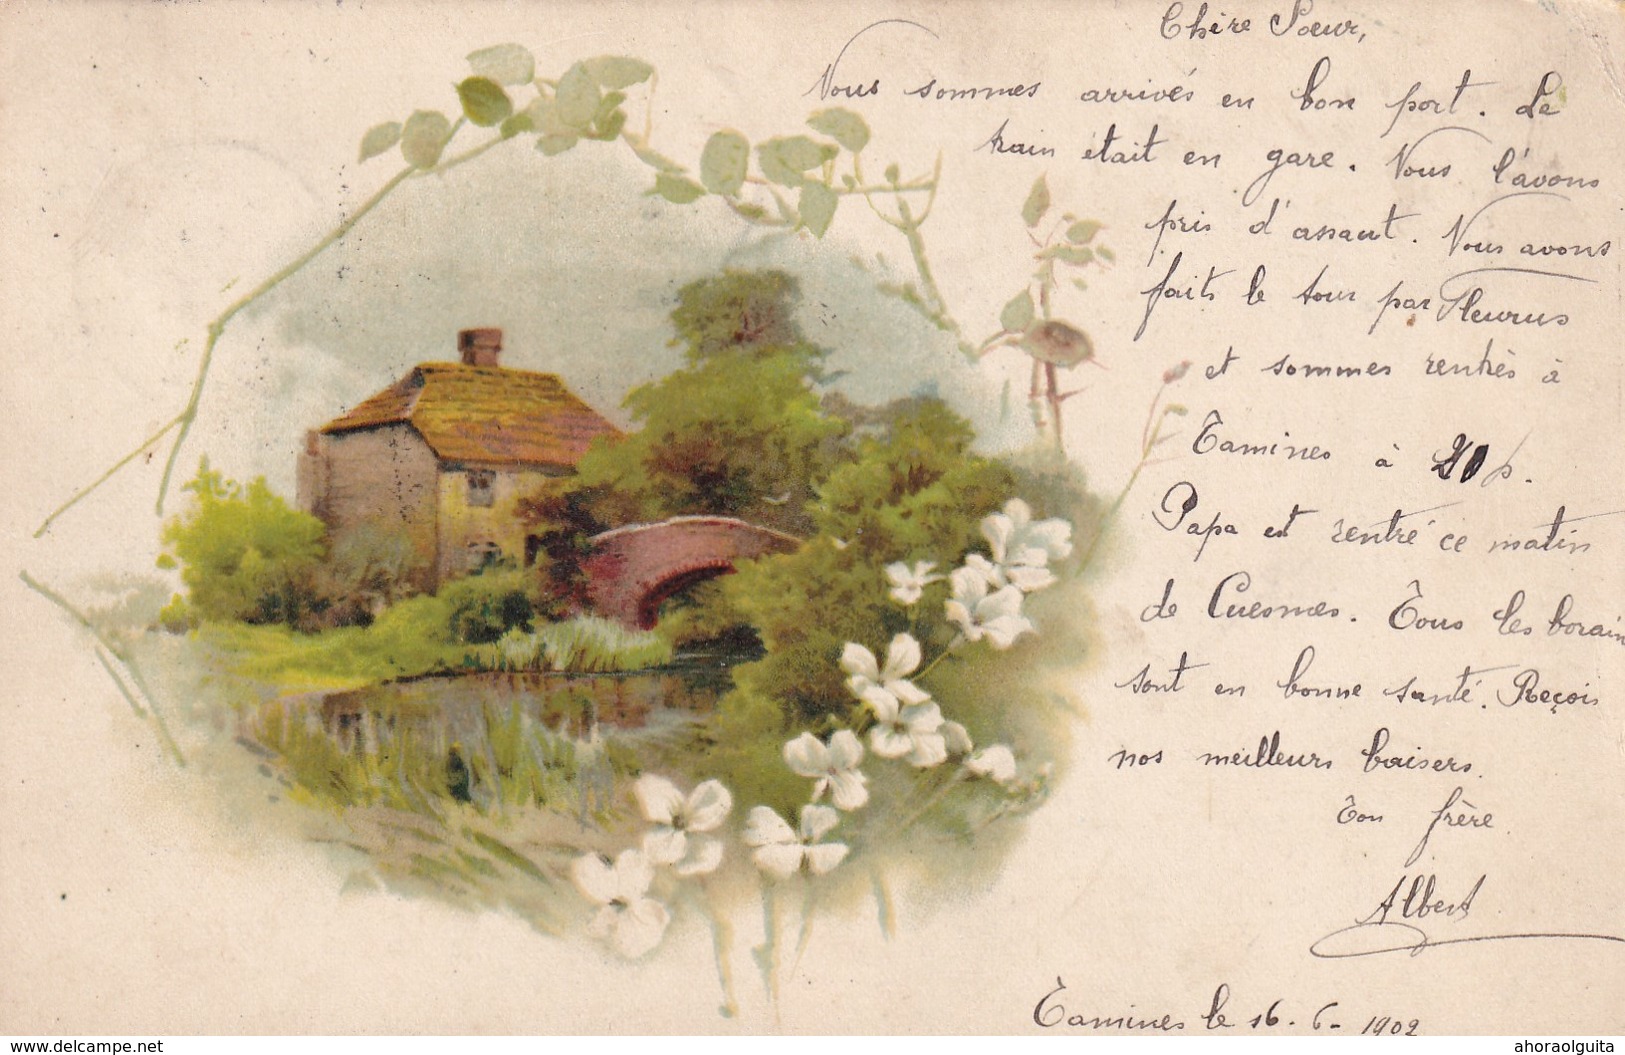 Chère Soeur,
Nous sommes arrivés en bon port. Le
train était en gare. Nous l'avons
pris d'assaut. Nous avons
faits le tour par Fleurus
et sommes rentrés à
Tamines à
Papa est rentré ce matin
de Cuesmes. Tous les borain
sont en bonne santé. Reçois
nos meilleurs baisers.
Ton frère
Albert
Tamines le 16-6-1902
delcampe.net
ahoraolguita